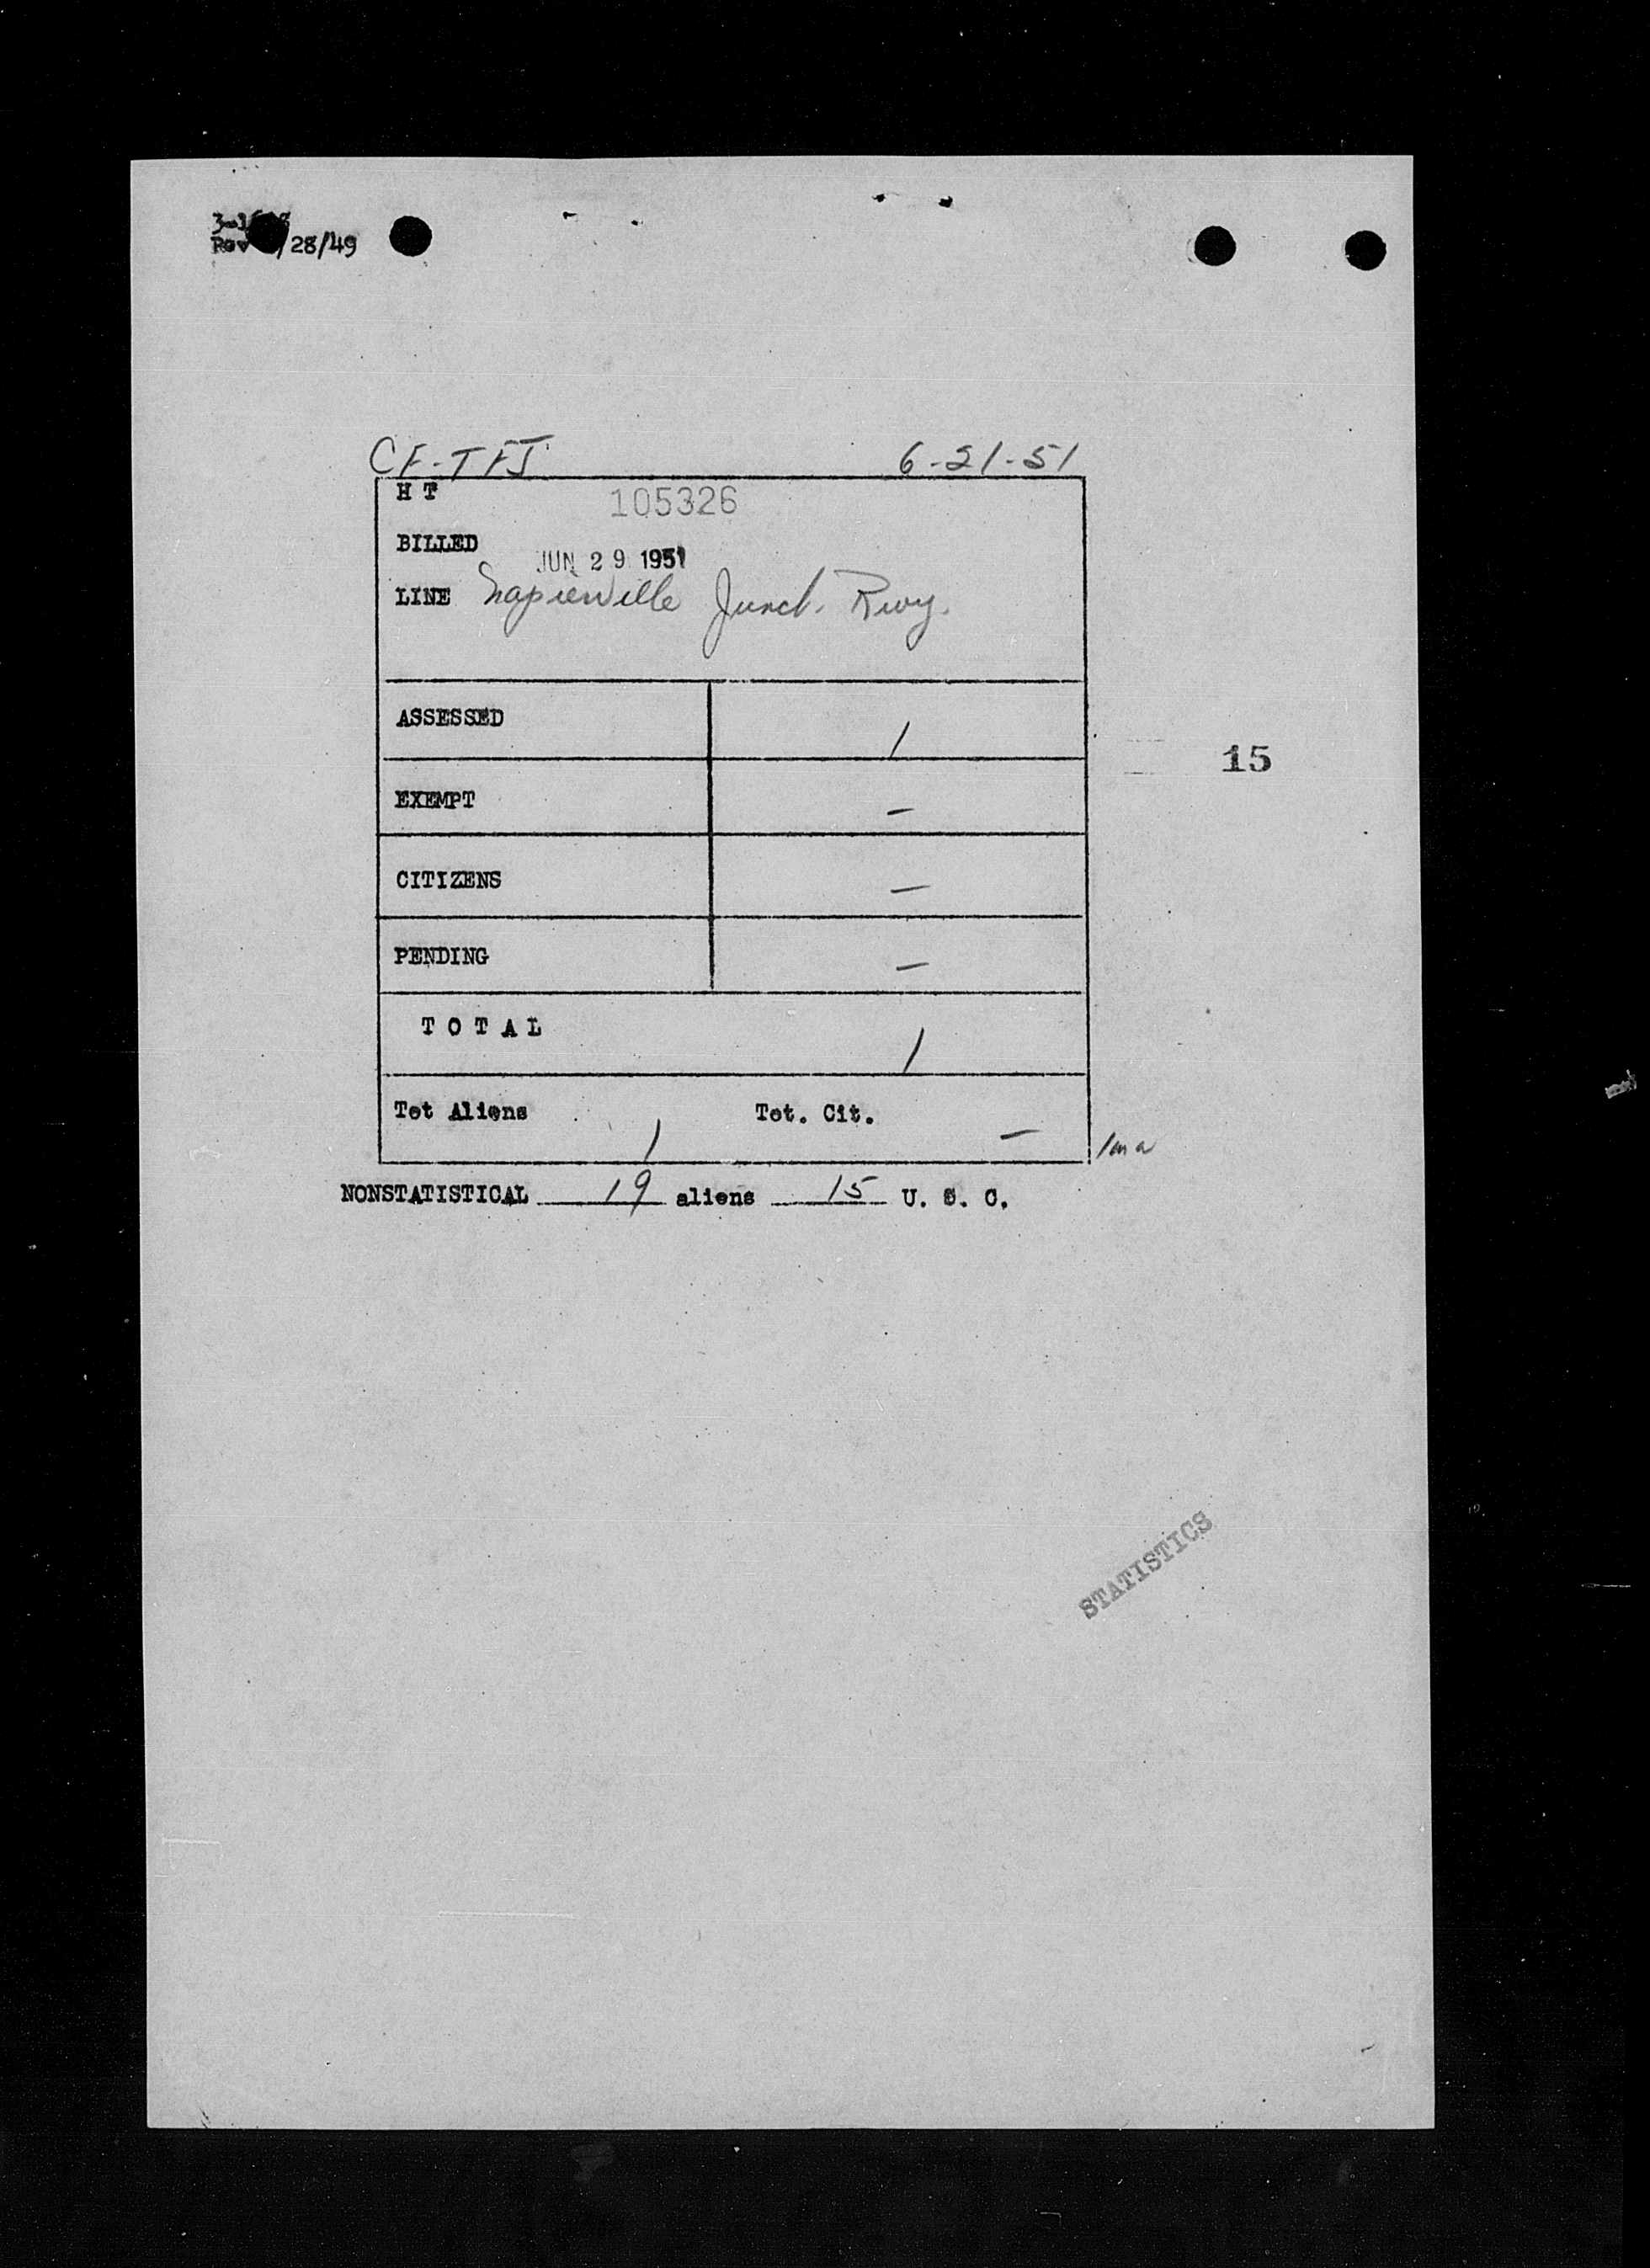 Rev /28/49
CF-TFJ 6-21-51
H T 105326
BILLED JUN 29 1951
LINE Napierville Junct. Rwy.
ASSESSED 1
15
EXEMPT –
CITIZENS –
PENDING –
T O T A L 1
Tot Aliens 1 Tot. Cit. –
NONSTATISTICAL 19 aliens 15 U. S. C.
STATISTICS